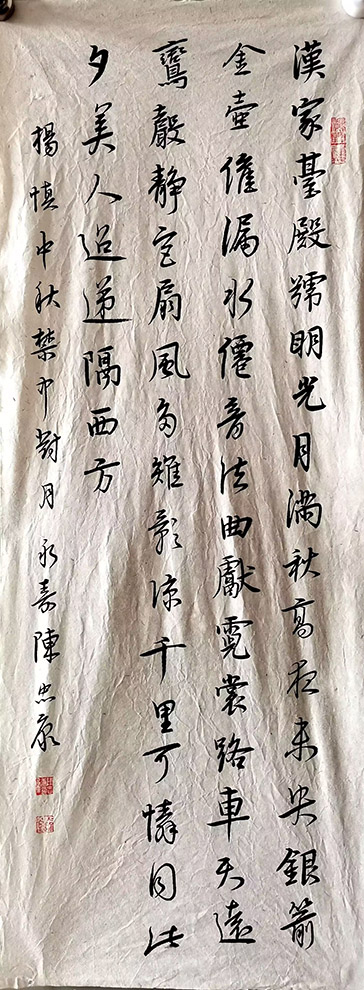 漢家臺殿號明光月滿秋高夜未央銀箭
金壺催漏水僊音法曲獻霓裳路車天遠
鸞聲静宮扇風多雉影涼千里可憐同此
夕美人迢遞隔西方
楊慎中秋禁中對月 永嘉陳忠康